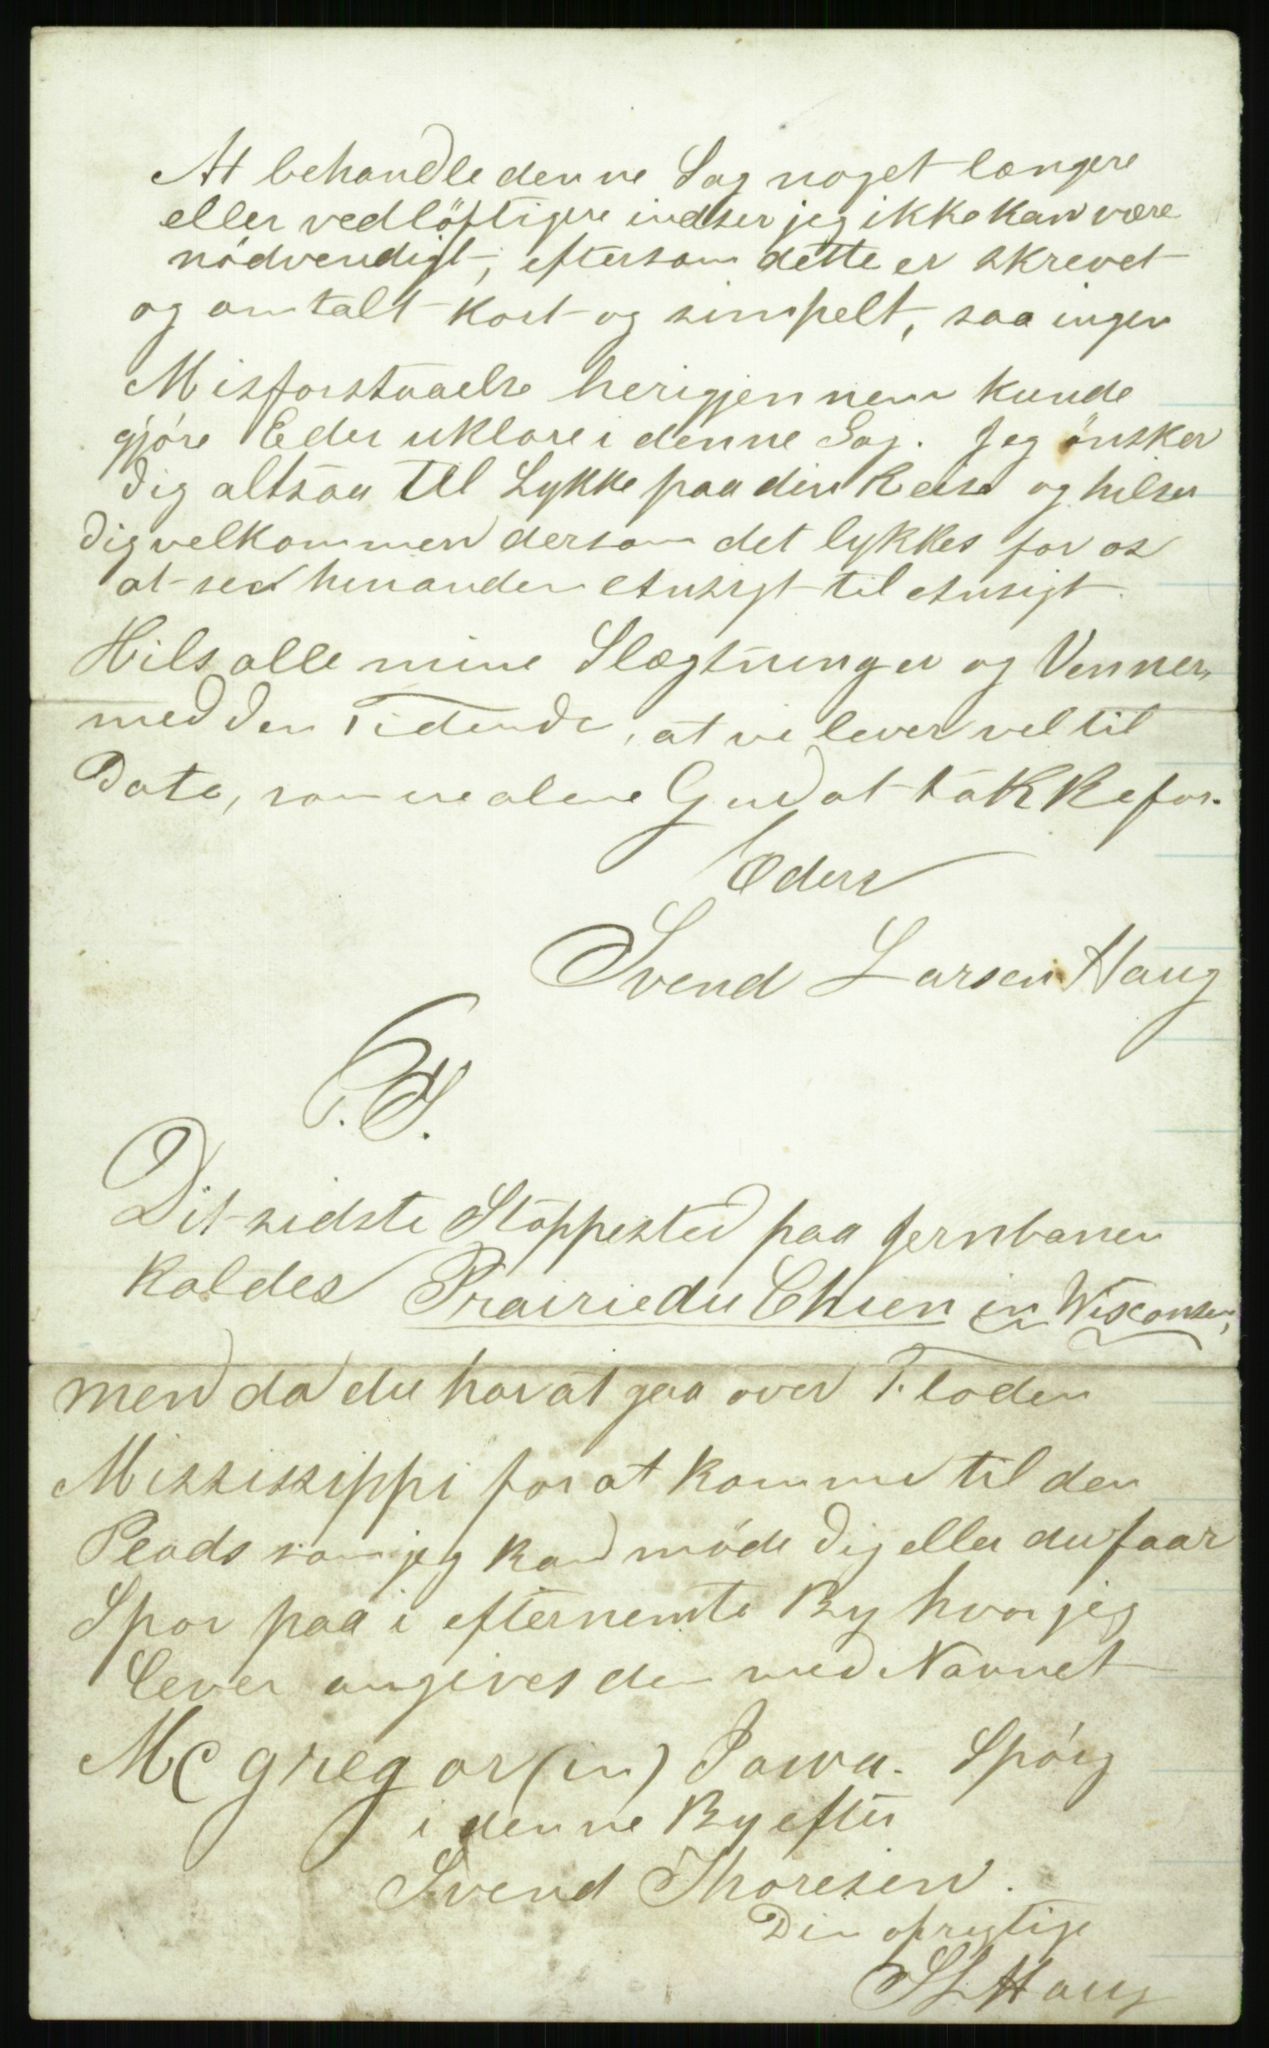 At behandle denne Sag noget længere
eller vedlöftigere indser jeg ikke kan være
nödvendigt, eftersom dette er skrevet
og omtalt kort og simpelt, saa ingen
Misforstaaelse herigjennem kunde
gjöre Eder uklare i denne Sag. Jeg önsker
dig altsaa til Lykke paa din Reise og hilser
dig velkommen dersom det lykkes for os
at see hinanden Ansigt til Ansigt.
Hils alle mine Slægtninger og Venner,
med den Tidende, at vi lever vel til
Dato, som vi alene Gud at takke for.
Eders
Svend Larsen Haug
P.S.
Dit sidste Stoppested paa Jernbanen
kaldes Prairie du Chien in Wisconsin,
men da du har at gaa over Floden
Mississippi for at komme til den
Plads som jeg kan möde dig eller du faar
Spor paa i efternemte By hvor jeg
lever angives den med Navnet
McGregor (in) Iowa. Spörg
i denne By efter
Svend Thoresen.
Din oprigtige
SL Haug